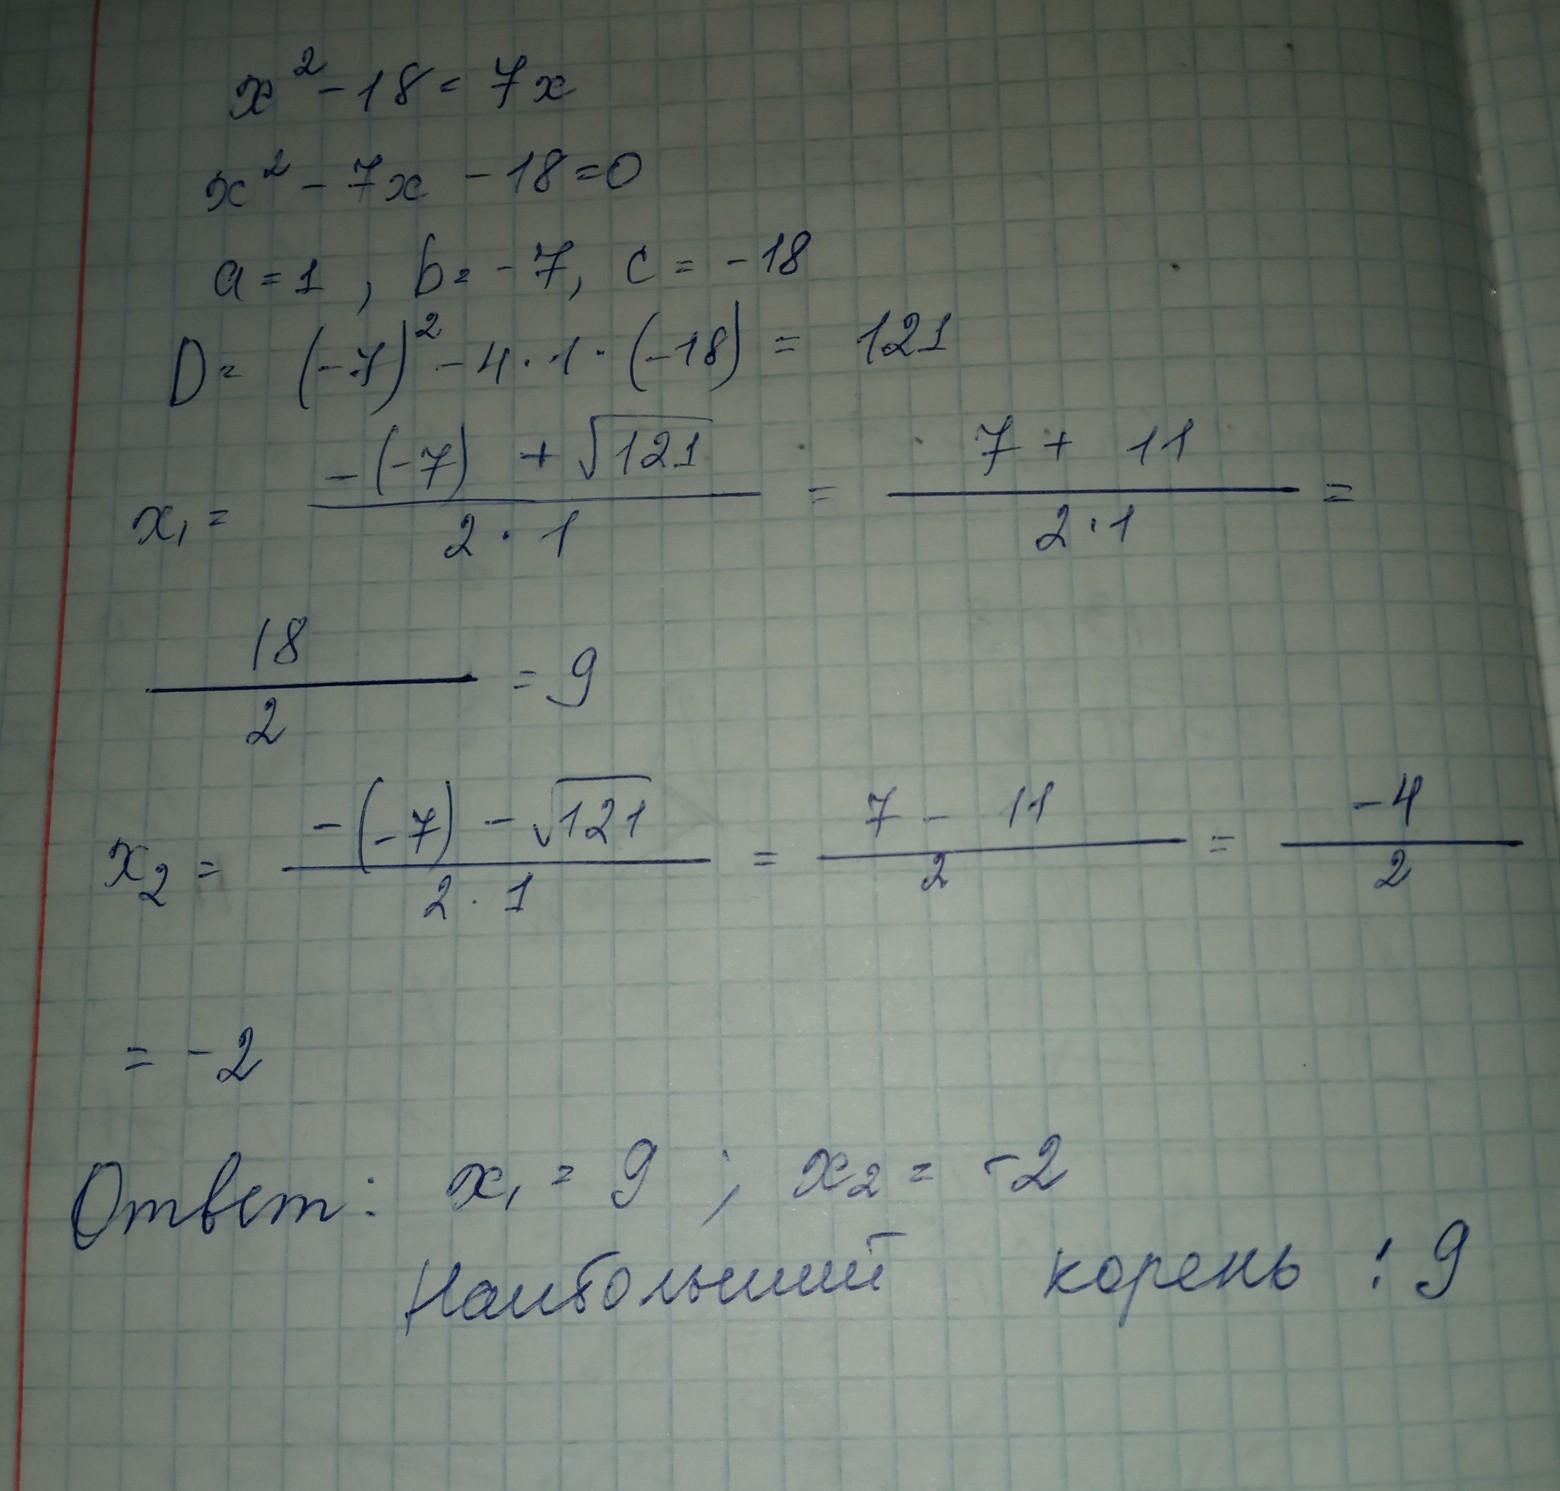 x² - 18 = 7x
x² - 7x - 18 = 0
a = 1, b = -7, c = -18
D = (-7)² - 4 · 1 · (-18) = 121
x₁ = (-(-7) + √121) / (2 · 1) = (7 + 11) / (2 · 1) =
18 / 2 = 9
x₂ = (-(-7) - √121) / (2 · 1) = (7 - 11) / 2 = -4 / 2
= -2
Ответ: x₁ = 9 ; x₂ = -2
Наибольший корень : 9